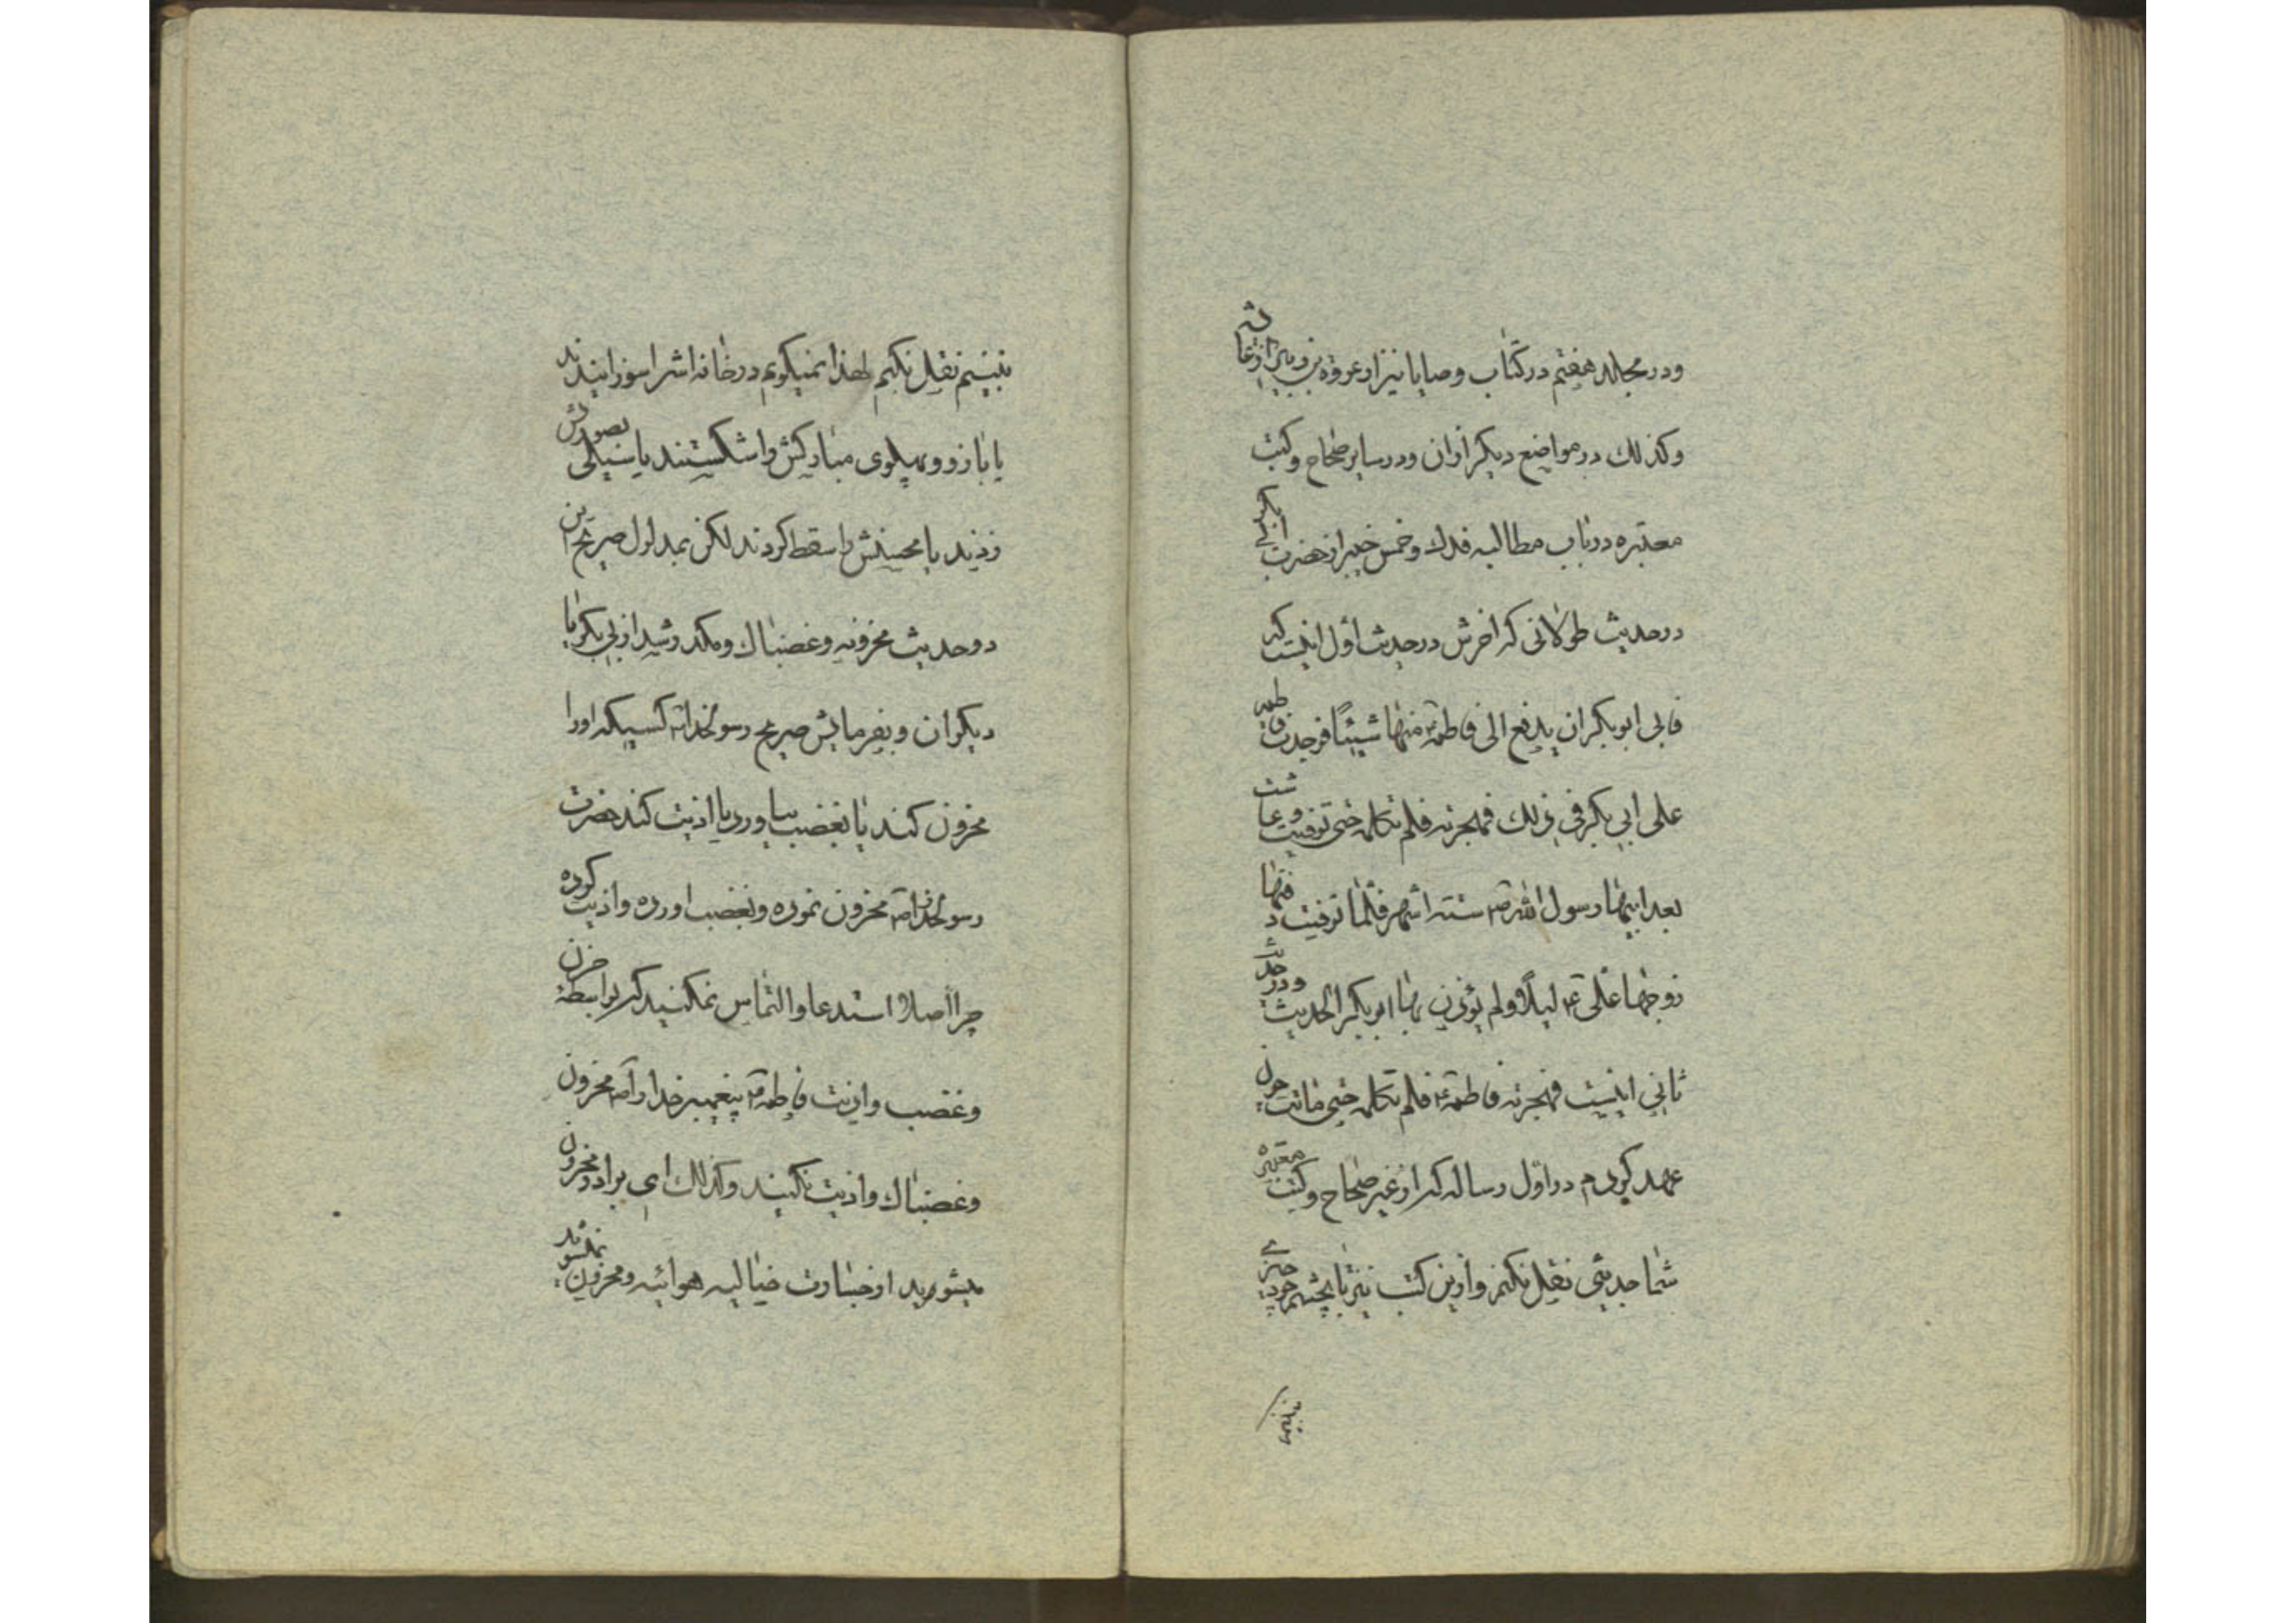 ودر مجلد هفتم در کتاب وصایا نیز از عروة بن زبیر از عایشه
وکذلك در مواضع دیکر ازان ودر سایر صحاح وکتب
معتبره در باب مطالبه فدك وخمس خیبر از حضرت ابی بکر
در حدیث طولانی که اخرش در حدیث اول اینست که
فابی ابو بکر ان یدفع الی فاطمة ع منها شیئًا فوجدت فاطمه
علی ابی بکر فی ذلك فهجرته فلم تکلمه حتی توفیت وعاشت
بعد ابیها رسول الله ص ستة اشهر فلما توفیت دفنها
زوجها علی ع لیلًا ولم یؤذن بها ابو بکر الحدیث ودر حدیث
ثانی اینست فهجرته فاطمة ع فلم تکلمه حتی ماتت چون
عهد کردم در اول رساله که از غیر صحاح وکتب معتبره
شما حدیثی نقل نکنم وازین کتب نیز تا بچشم خود چیزے
نبینم
نبینم نقل نکنم لهذا نمیکویم در خانه اش را سوزانیدند
یا بازو و پهلوی مبارکش را شکستند یا سیلی بصورتش
زدند یا محسنش را سقط کردند لکن بمدلول صریح این
دو حدیث محزونه وغضبناك ومکدر شد از ابی بکر یا
دیکران وبفرمایش صریح رسولخدا ص کسیکه اورا
محزون کند یا بغضب بیاورد یا اذیت کند حضرت
رسولخدا ص محزون نموده وبغضب اورده واذیت کرده
چرا اصلا استدعا والتماس نمکنید که بواسطه حزن
وغضب واذیت فاطمه ع پیغمبر خدا را ص محزون
وغضبناك واذیت نکنید وکذلك ای برادر محزون
میشوید از خسارت خیالیه هوائیه ومحزون نمیشوند